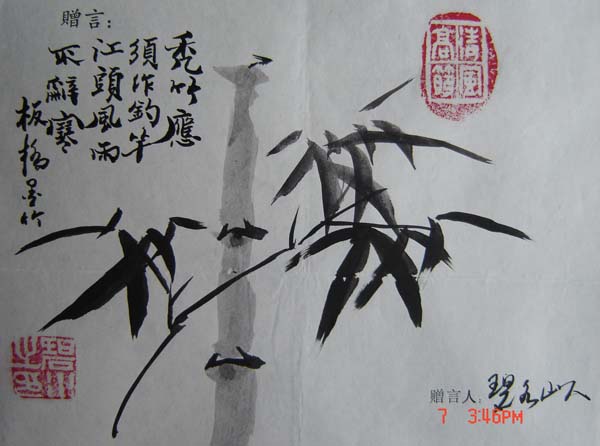 贈言：
禿竹應
須作釣竿
江頭風雨
不辭寒
板橋墨竹
清風
高節
贈言人：山人
7 3:46PM